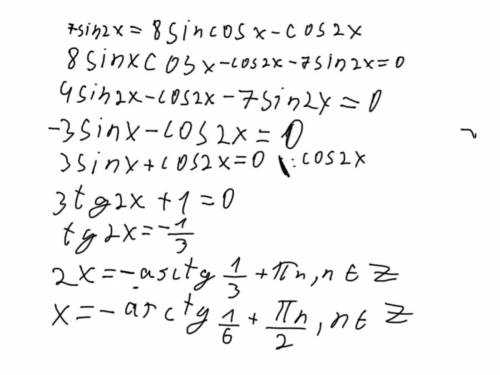 7sin2x = 8sincosx - cos2x
8sinxcosx - cos2x - 7sin2x = 0
4sin2x - cos2x - 7sin2x = 0
-3sinx - cos2x = 0
3sinx + cos2x = 0 | : cos2x
3tg2x + 1 = 0
tg2x = -1/3
2x = -arctg 1/3 + πn, n ∈ Z
x = -arctg 1/6 + πn/2, n ∈ Z